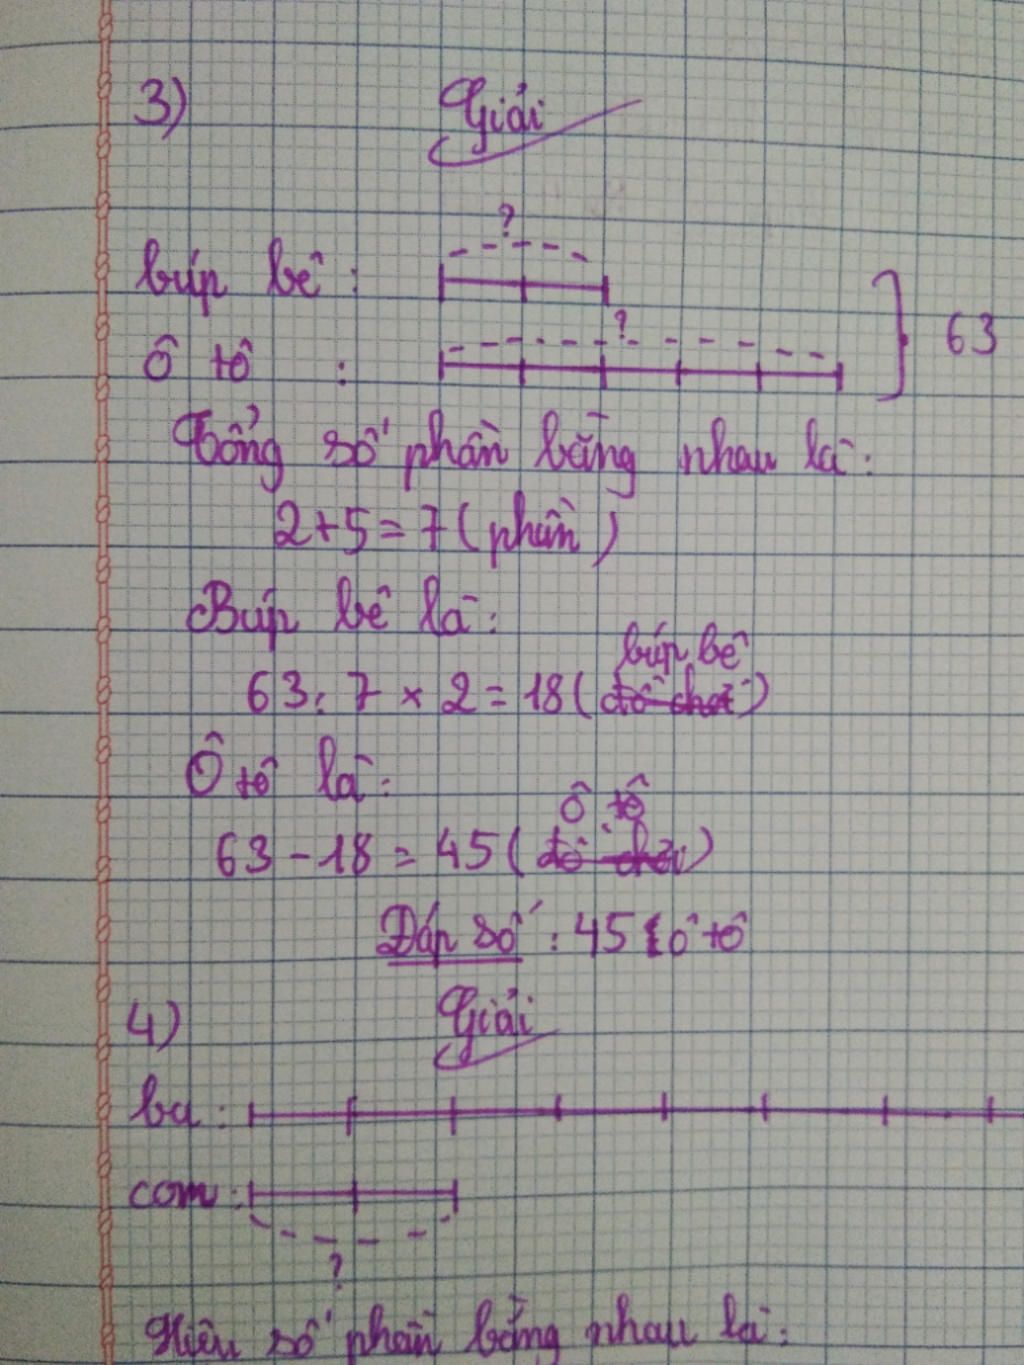 3) Giải
?
búp bê :
?
Ô tô :
63
Tổng số phần bằng nhau là:
2+5=7(phần)
Búp bê là:
búp bê
63:7 × 2=18(đồ chơi)
Ô tô là:
ô tô
63-18=45(đồ chơi)
Đáp số: 45 ô tô
4) Giải
ba:
com:
?
Hiệu số phần bằng nhau là: